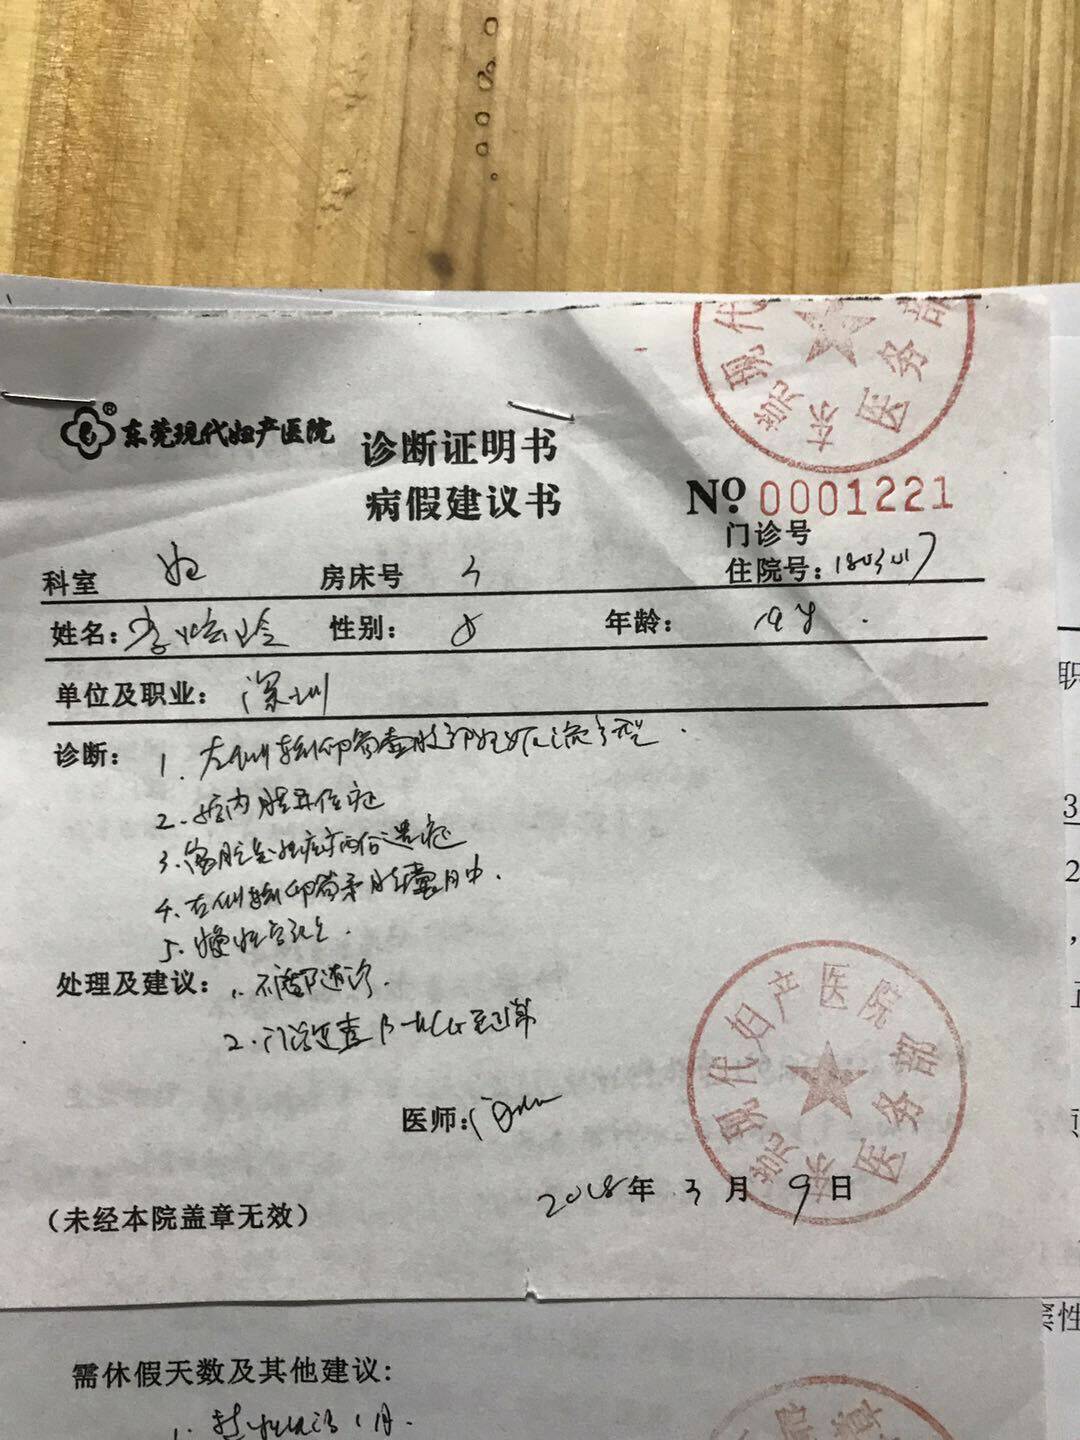 东莞现代妇产医院
诊断证明书
病假建议书
东莞现代
医务部
№ 0001221
门诊号
住院号：1803017
科室 妇 房床号 3
姓名：李 玲 性别：女 年龄：
单位及职业：深圳
诊断： 1. 左侧输卵管壶腹部妊娠流产型.
2. 内膜异位症
3. 症
4. 左侧输卵管系膜囊肿.
5. 慢性
处理及建议： 1. 不适随诊.
2. 门诊复查β-HCG至正常
医师：
东莞现代妇产医院
医务部
2018年 3 月 9 日
（未经本院盖章无效）
需休假天数及其他建议：
1. 1月.
职
3
2
，